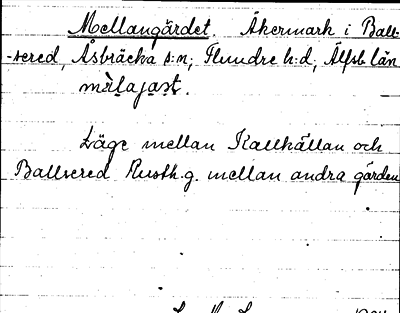 Mellangärdet. Åkermark i Ball-
-sered, Åsbräcka s:n; Flundre h:d; Älfsb. län
Läge mellan Kallkällan och
Ballsered Rusth.g. mellan andra gärden